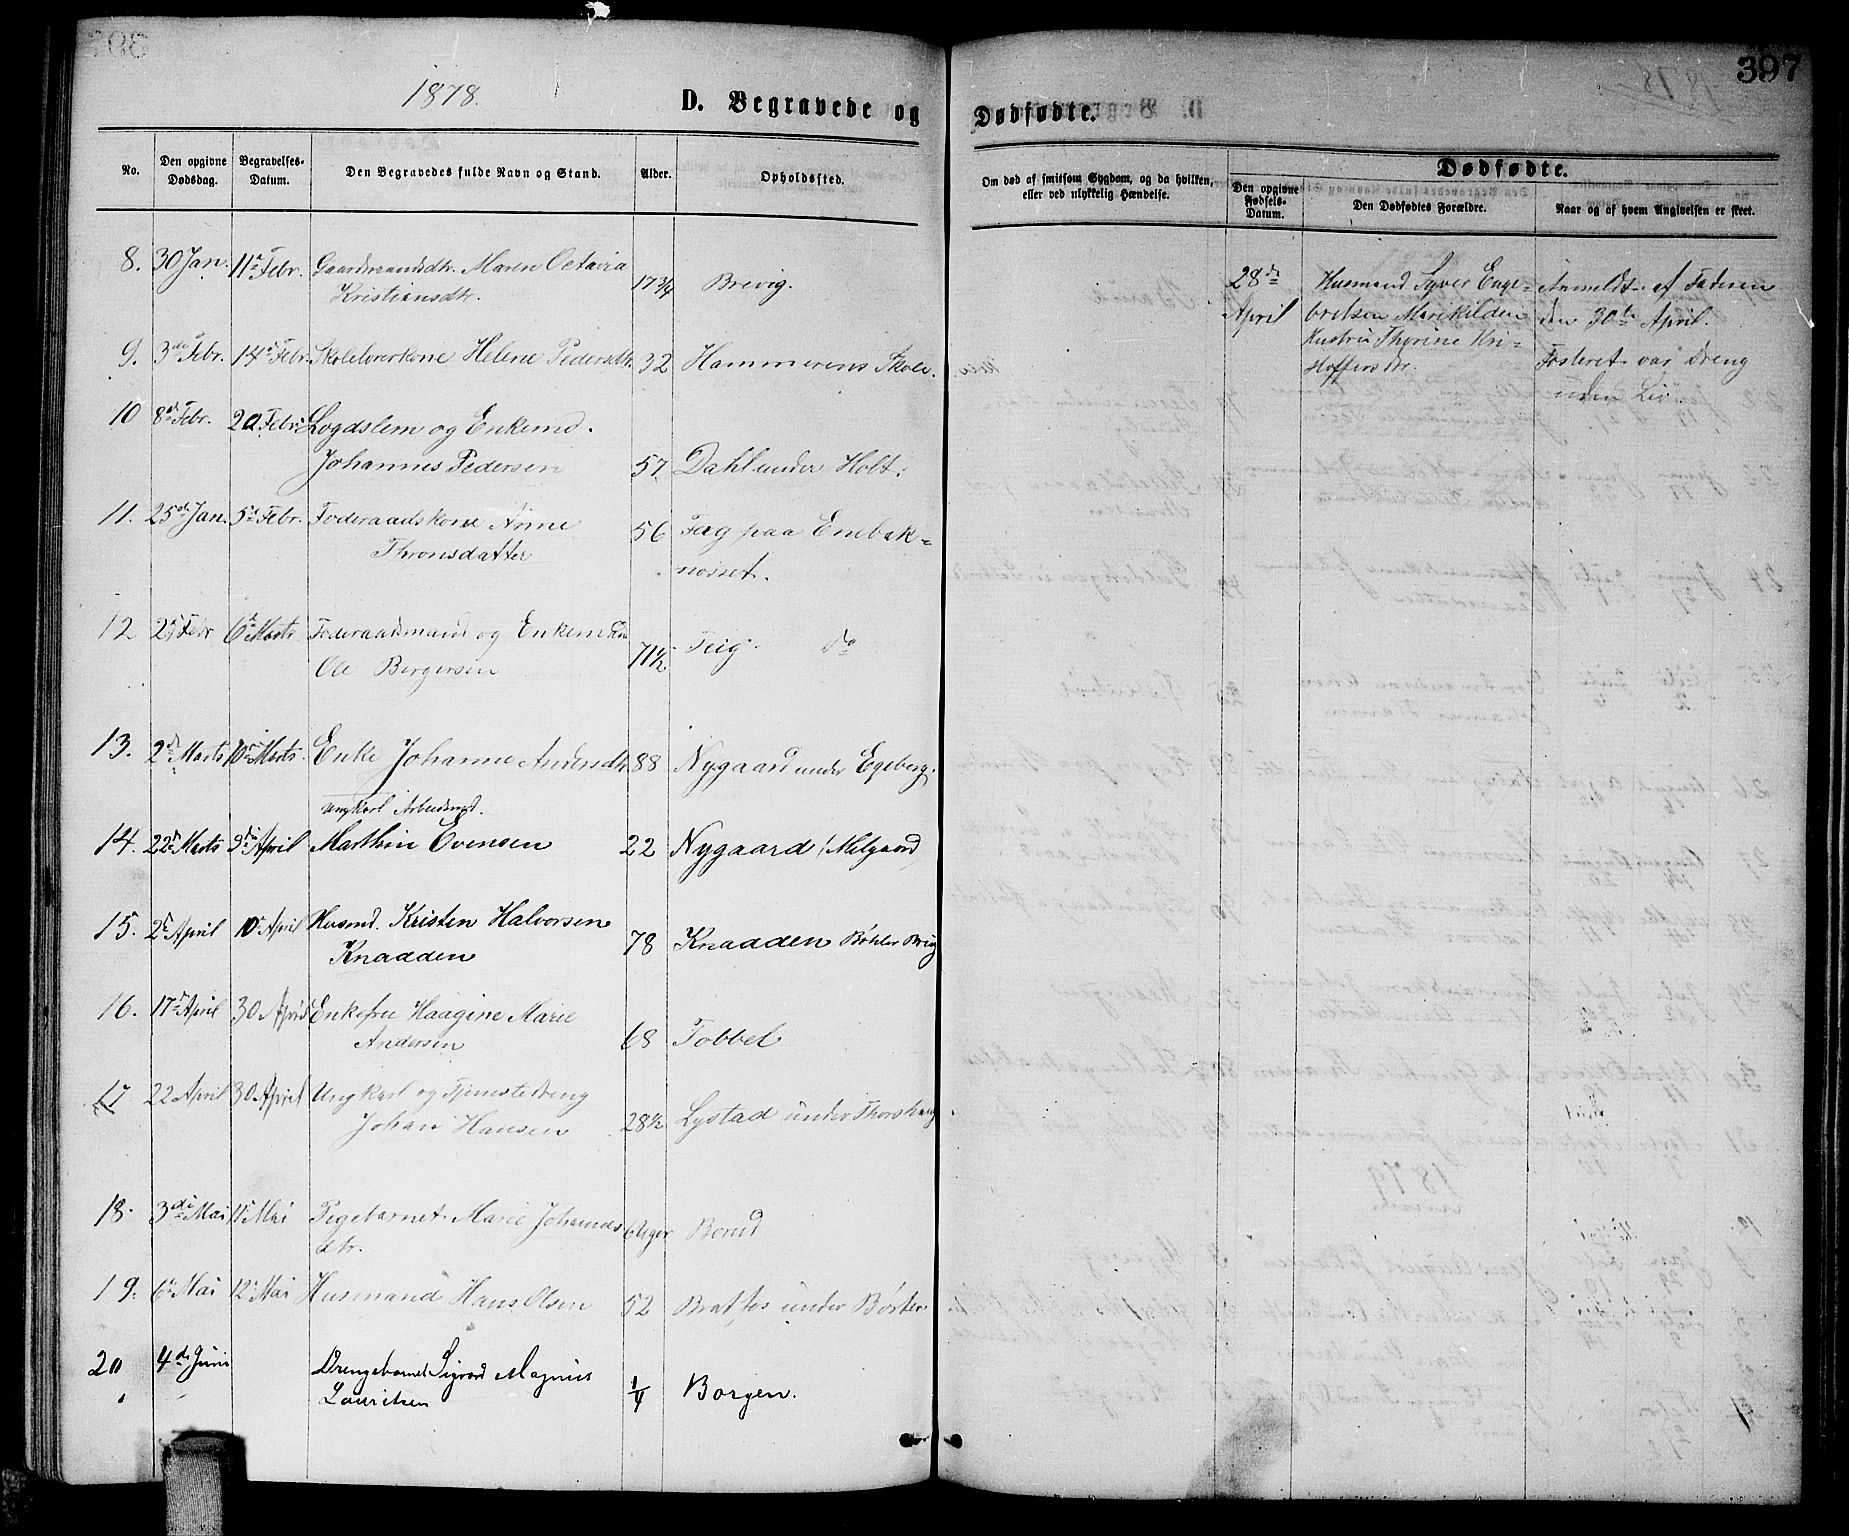 397
1878.
D. Begravede og Dødfødte.
No.
Den opgivne Dødsdag.
Begravelses-Datum.
Den Begravedes fulde Navn og Stand.
Alder.
Opholdssted.
Om død af smitsom Sygdom, og da hvilken,
eller ved ulykkelig Hændelse.
Dødfødte.
Den opgivne Fødsels-Datum.
Den Dødfødtes Forældre.
Naar og af hvem Angivelsen er skeet.
8. 30 Jan. 11te Febr. Gaardmandsdtr. Maren Octavia
Kristiansdtr. 17 3/4 Brevig.
9. 3die Febr. 14de Febr. Skolelærerkone Helene Pedersdtr. 32 Hammerens Skole.
10 8de Febr. 20 Febr. Logdslem og Enkemd.
Johannes Pedersen 57 Dahl under Holt.
11. 25de Jan. 5te Febr. Føderaadskone Anne
Thronsdatter 56 Feig paa Enebak=
nesset.
12 Febr 6te Marts Føderaadsmand og Enkemand
Ole Bergersen 71 1/2 Teig. do
13. 2den Marts 10de Marts. Enke Johanne Andersdtr. 88 Nygaard under Egeberg.
Ungkarl Arbeidsmd.
14. 22de Marts 3die April Marthin Evensen 22 Nygaard / Melgaard
15. 2den April 10de April Husmd. Kristen Halvorsen
Knadden 78 Knadden Bøhler Brug
16. 17de April 30 April Enkefru Haagine Marie
Andersen 68 Tobbel
17 22 April 30 April Ungkarl og Tjenestedreng
Johan Hansen 28 1/2 Lystad under Thorshaug
18. 3die Mai 11te Mai Pigebarnet Marie Johannes
dtr. 6 Uger Borud
19. 6te Mai 12te Mai Husmand Hans Olsen 52 Bratfos under Børter
20 4de Juni Drengebarnet Sigvard Magnus
Lauritsen 1/4 Borgen.
28de
April
Husmand Syver Enge=
bretsen Marikilden
Hustru Thorine Kri=
stoffersdtr.
Anmeldt af Faderen
den 30te April.
Fosteret var Dreng
uden Liv.